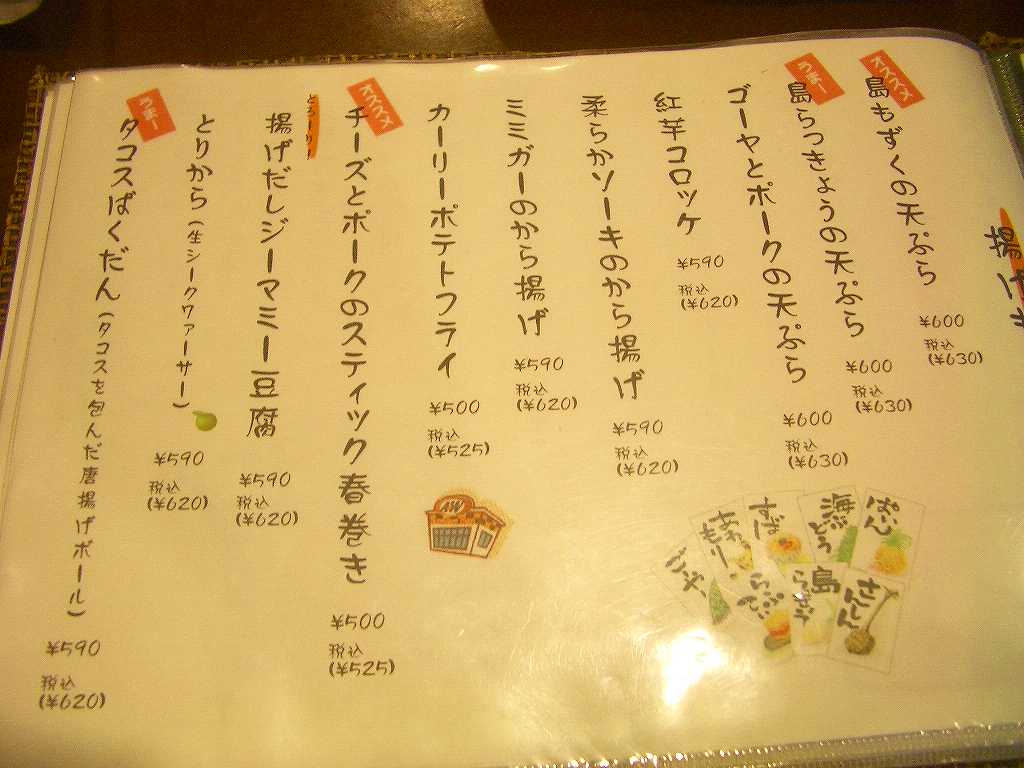 揚げ
オススメ
島もずくの天ぷら
¥600
税込
(¥630)
うまー
島らっきょうの天ぷら
¥600
税込
(¥630)
ゴーヤとポークの天ぷら
¥600
税込
(¥630)
紅芋コロッケ
¥590
税込
(¥620)
柔らかソーキのから揚げ
¥590
税込
(¥620)
ミミガーのから揚げ
¥590
税込
(¥620)
カーリーポテトフライ
¥500
税込
(¥525)
A&W
オススメ
チーズとポークのスティック春巻き
¥500
税込
(¥525)
とろーり!
揚げだしジーマミー豆腐
¥590
税込
(¥620)
とりから(生シークワァーサー)
¥590
税込
(¥620)
うまー
タコスばくだん(タコスを包んだ唐揚げボール)
¥590
税込
(¥620)
ぱいん
海ぶどう
あわもり
ごーや
さんしん
島